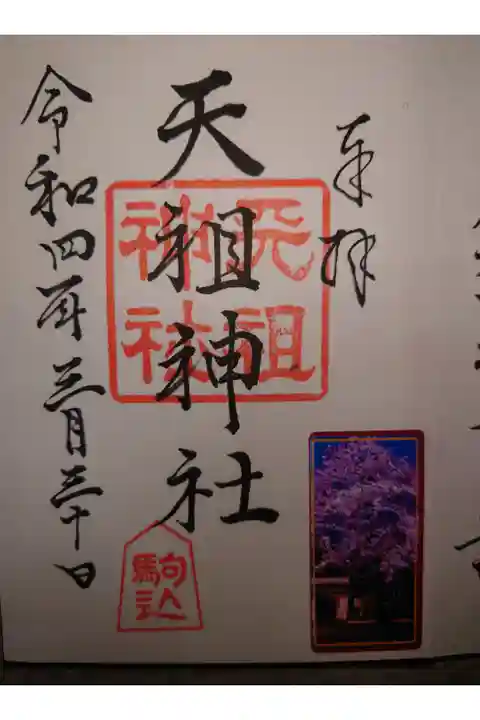 奉拝
天祖神社
天祖神社
駒込
令和四年三月三十日